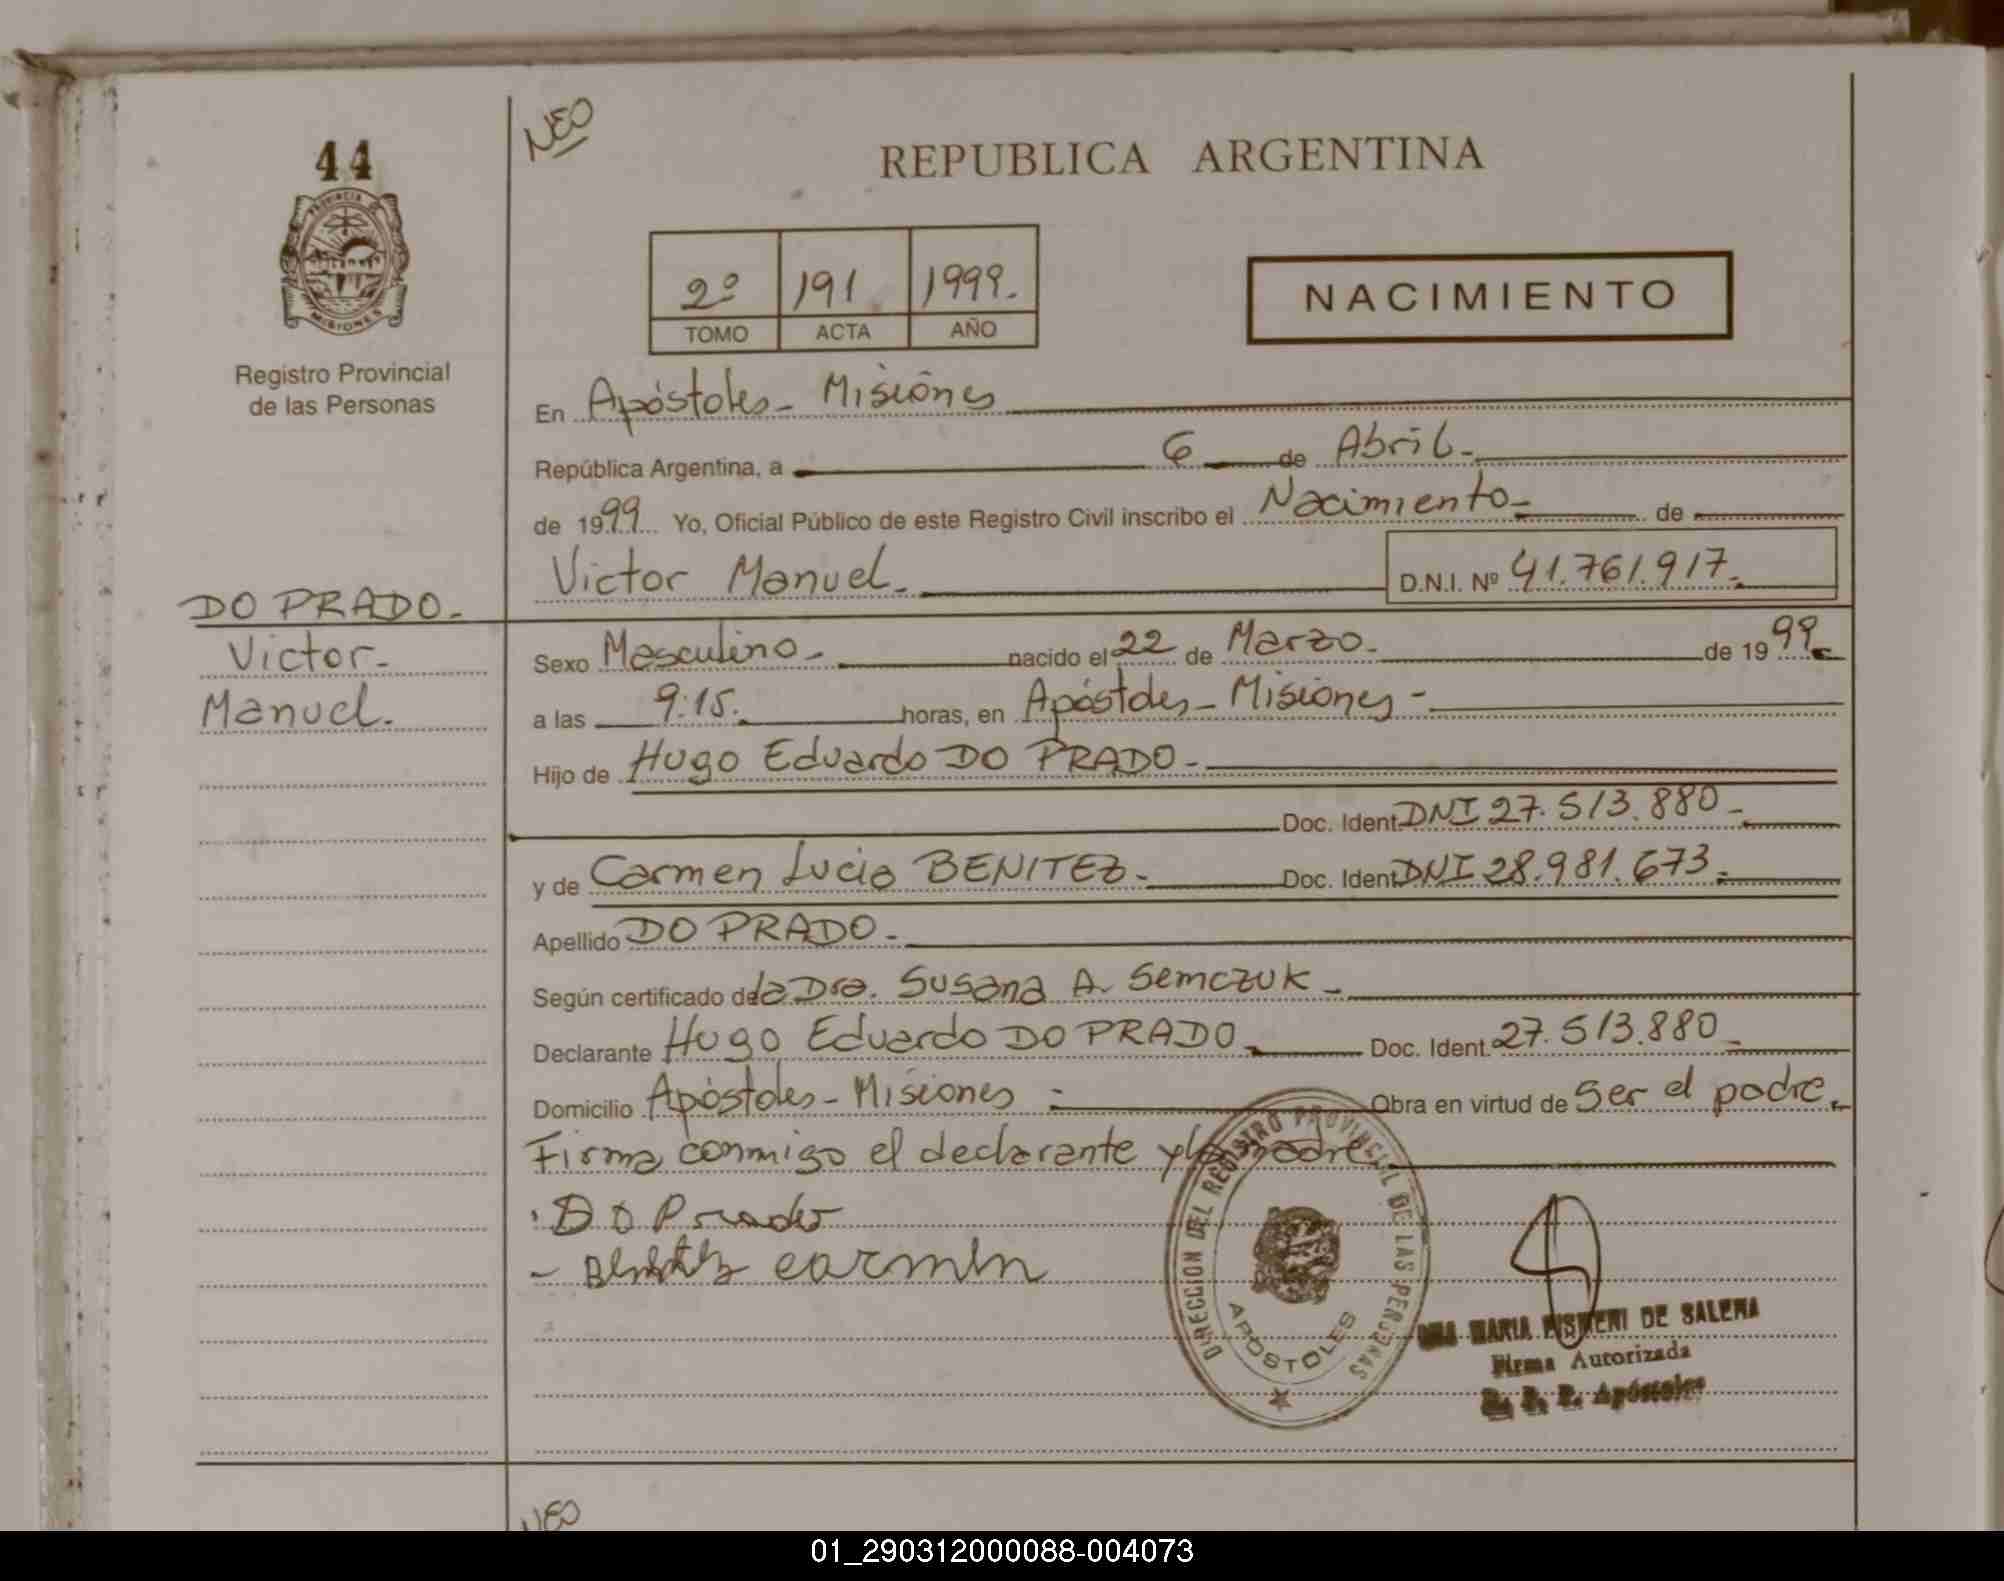 44
NEO
REPUBLICA ARGENTINA
PROVINCIA DE
MISIONES
2º 191 1999.
TOMO ACTA AÑO
NACIMIENTO
Registro Provincial
de las Personas
En Apóstoles - Misiones
República Argentina, a 6 de Abril.
de 1999 Yo, Oficial Público de este Registro Civil inscribo el Nacimiento- de
Victor Manuel. D.N.I. Nº 41.761.917.
DO PRADO.
Victor.
Manuel.
Sexo Masculino nacido el 22 de Marzo. de 1999.
a las 9:15. horas, en Apóstoles - Misiones -
Hijo de Hugo Eduardo DO PRADO -
Doc. Ident. DNI 27.513.880 -
y de Carmen Lucia BENITEZ. Doc. Ident. DNI 28.981.673.
Apellido DO PRADO -
Según certificado de la Dra. Susana A. Semczuk -
Declarante Hugo Eduardo DO PRADO. Doc. Ident. 27.513.880 -
Domicilio Apóstoles - Misiones - Obra en virtud de Ser el padre.
Firma conmigo el declarante y la madre.
DO Prado
- Benitez Carmen
DIRECCION DEL REGISTRO PROVINCIAL DE LAS PERSONAS
APOSTOLES
MARIA DE SALENA
Firma Autorizada
R. P. P. Apóstoles
NEO
01_290312000088-004073